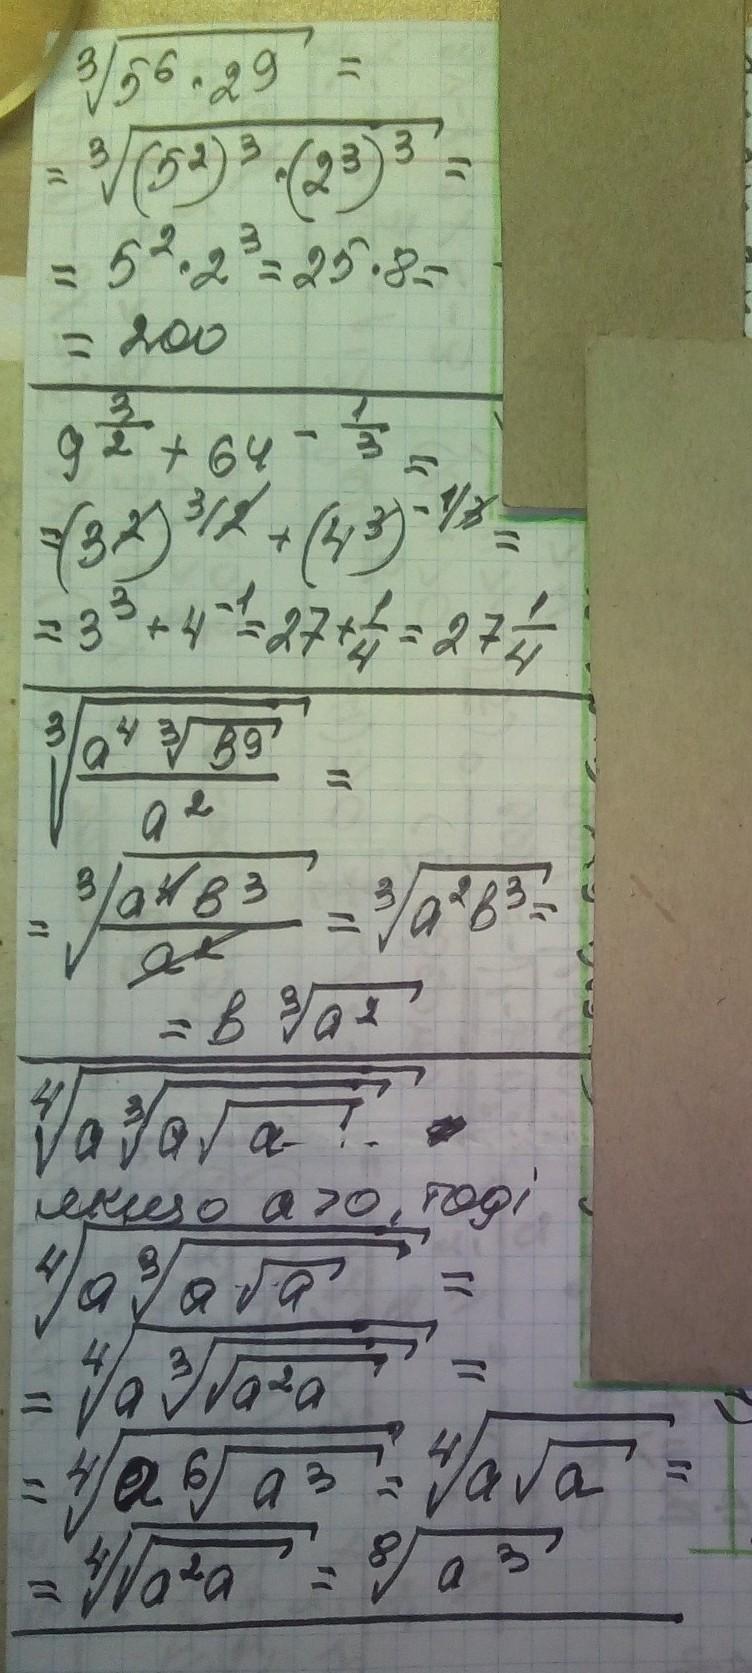 ∛(5⁶ · 2⁹) =
= ∛((5²)³ · (2³)³) =
= 5² · 2³ = 25 · 8 =
= 200
9^(3/2) + 64^(-1/3) =
= (3²)^(3/2) + (4³)^(-1/3) =
= 3³ + 4⁻¹ = 27 + 1/4 = 27 1/4
∛((a⁴ ∛(в⁹))/a²) =
= ∛((a⁴ в³)/a²) = ∛(a² в³) =
= в ∛(a²)
∜(a ∛(a √a)).
якщо a > 0, тоді
∜(a ∛(a · √a)) =
= ∜(a ∛(√(a²a))) =
= ∜(a ⁶√(a³)) = ∜(a √a) =
= ∜(√(a²a)) = ⁸√(a³)